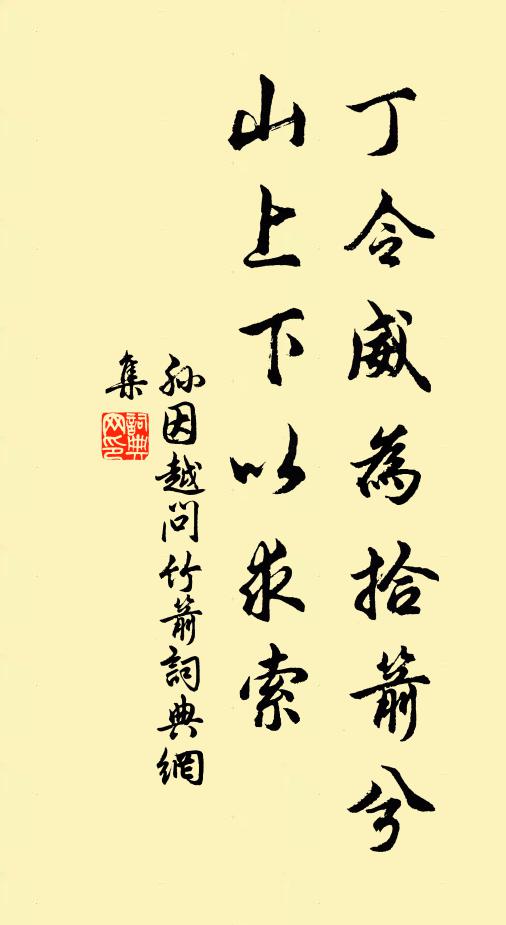 丁令威為拾箭兮
山上下以求索
孙因越问竹箭詞典網
集
詞典网印